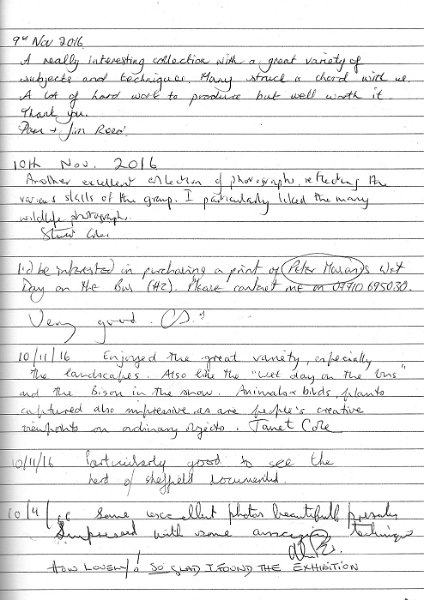 9th Nov 2016
A really interesting collection with a great variety of
subjects and techniques. Many struck a chord with us.
A lot of hard work to produce but well worth it.
Thank you.
+ Jim
10th Nov. 2016
Another excellent collection of photographs, reflecting the
various skills of the group. I particularly liked the many
wildlife photographs.
I'd be interested in purchasing a print of Peter 's Wet
Day on the Bus (#2). Please contact me on
Very good.
10/11/16 Enjoyed the great variety, especially
the landscapes. Also like the "wet day on the bus"
and the bison in the snow. Animals & birds, plants
captured also impressive as are people's creative
viewpoints on ordinary objects. Janet Cole
10/11/16 Particularly good to see the
best of Sheffield documented.
Some excellent photos beautifully
Impressed with some amazing
HOW LOVELY! SO GLAD I FOUND THE EXHIBITION